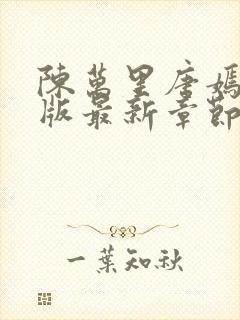 陳萬里唐嫣
版最新章節
一葉知秋